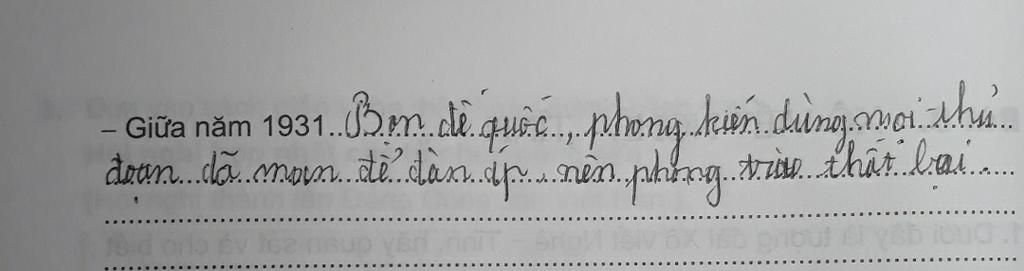 – Giữa năm 1931..Bọn đế quốc, phong kiến dùng mọi thủ
đoạn dã man để đàn áp nên phong trào thất bại